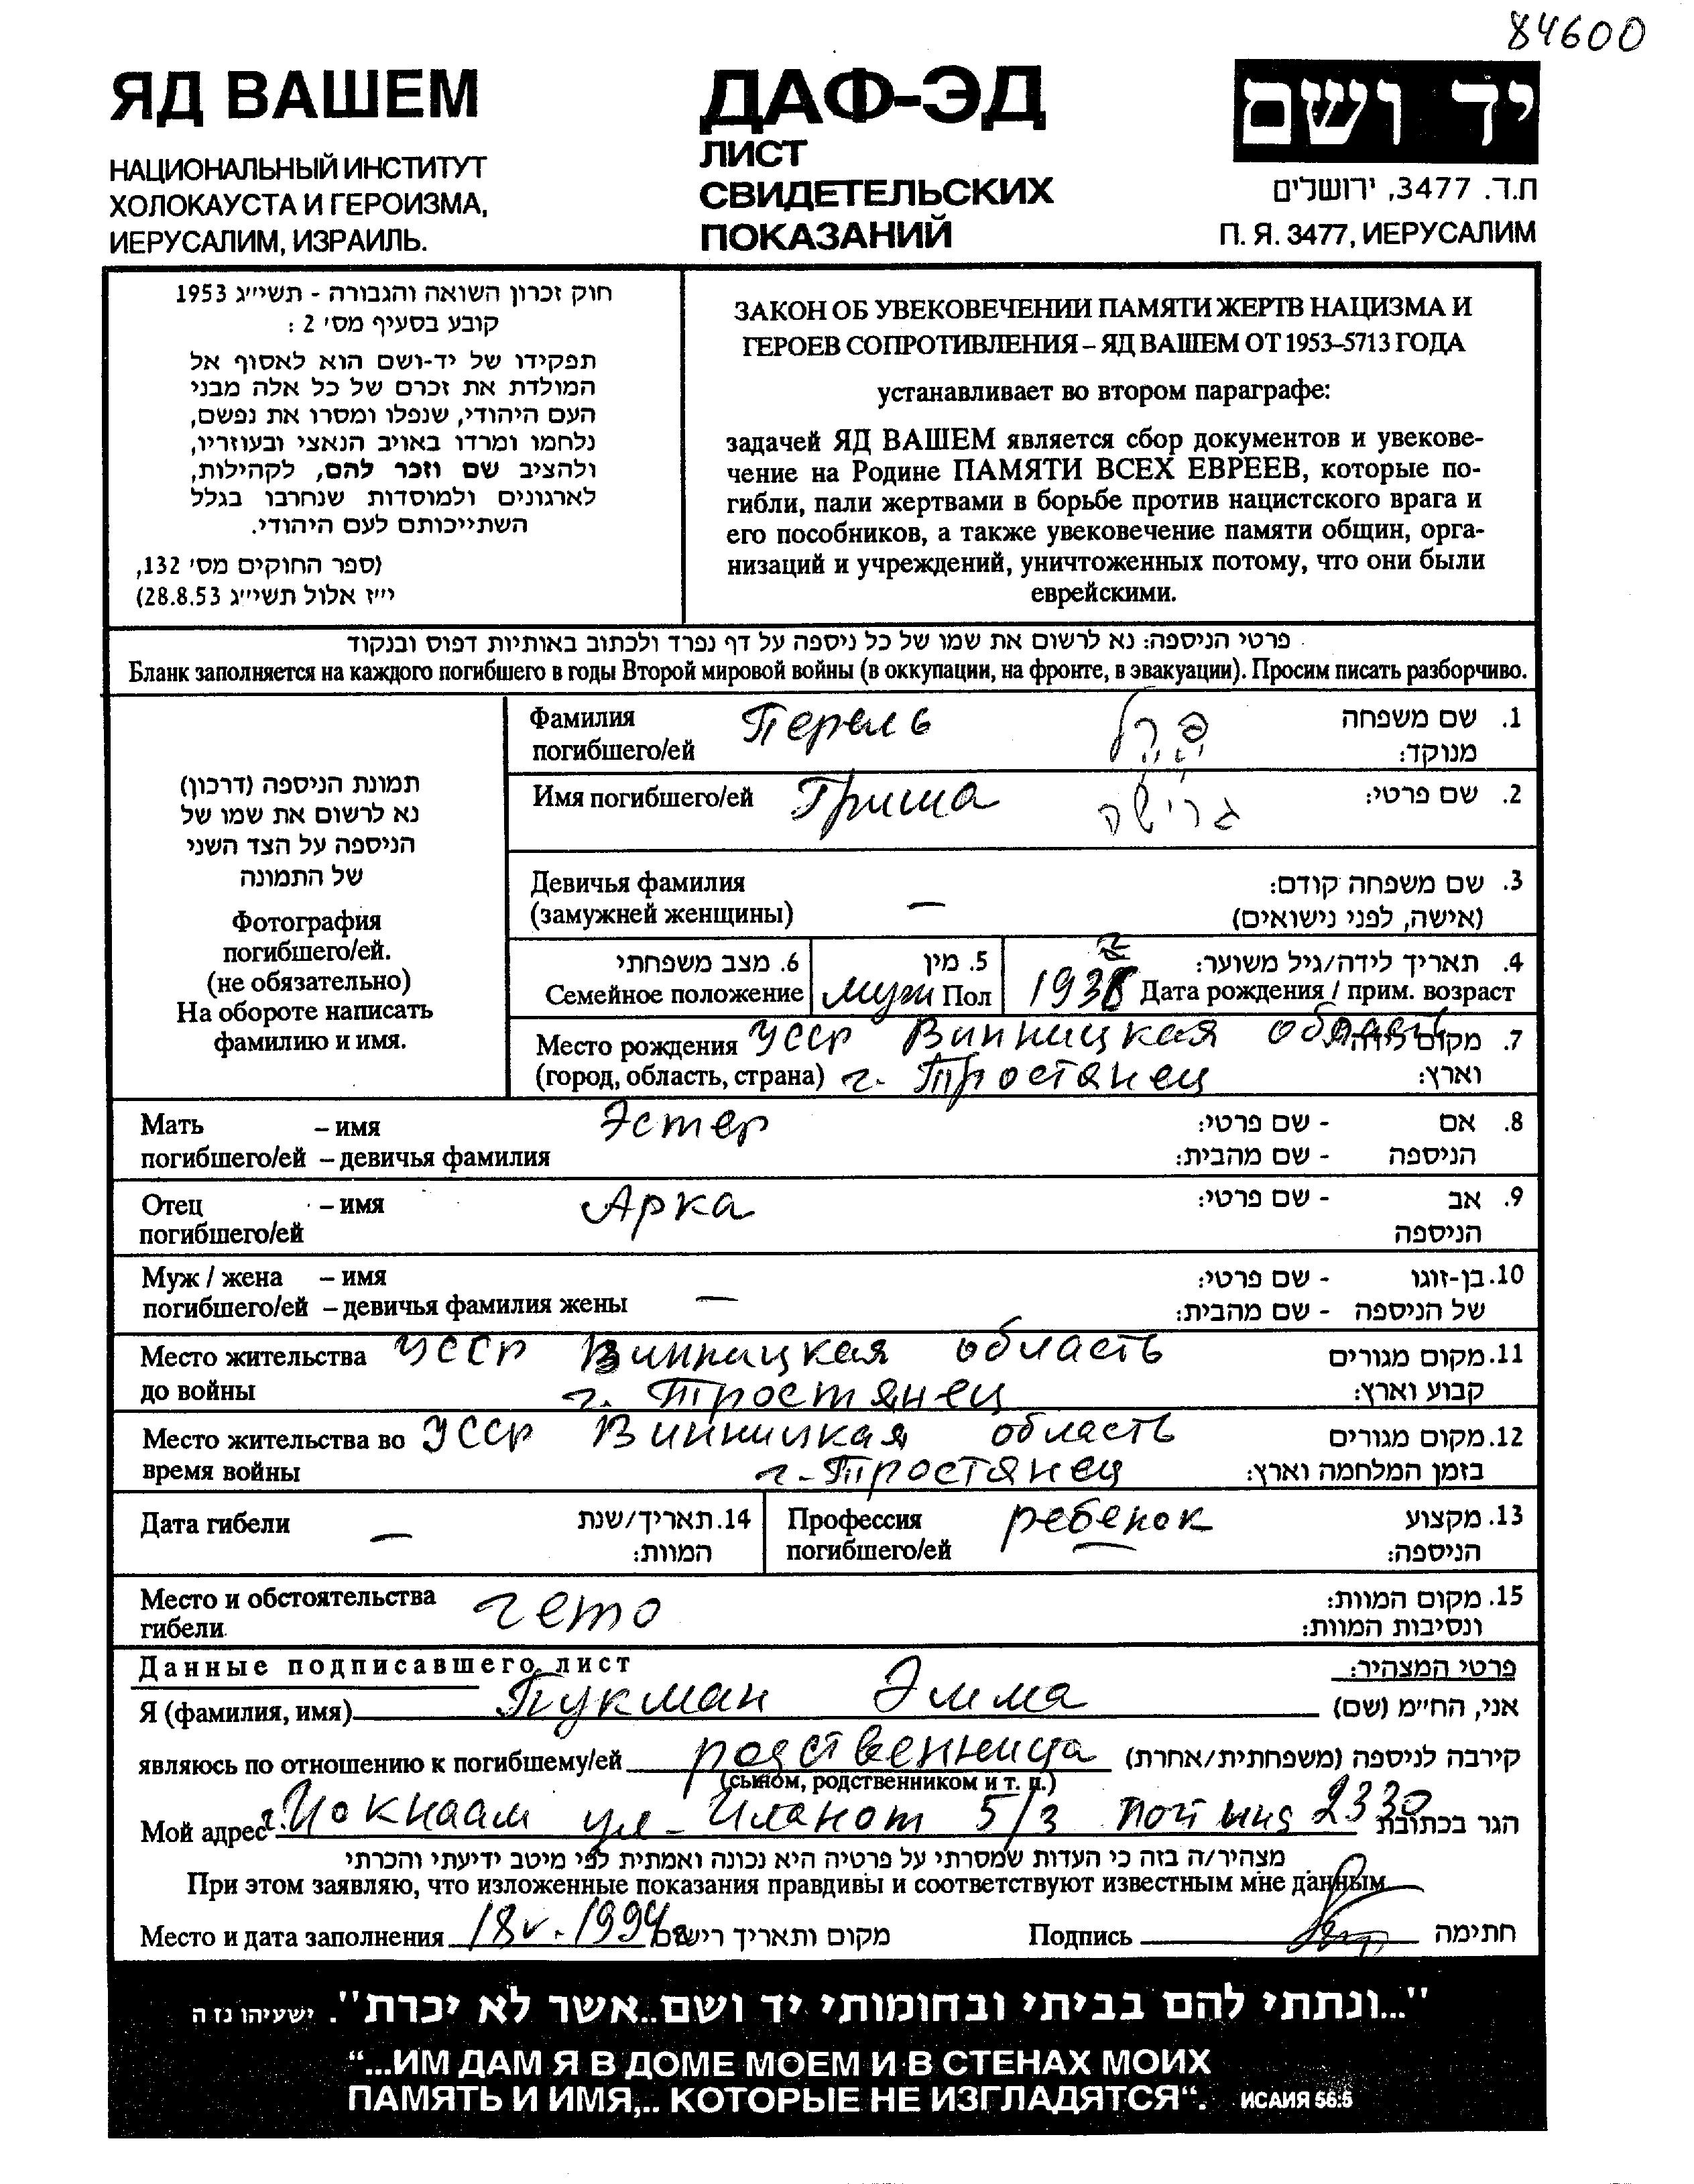 84600
ЯД ВАШЕМ
НАЦИОНАЛЬНЫЙ ИНСТИТУТ
ХОЛОКАУСТА И ГЕРОИЗМА,
ИЕРУСАЛИМ, ИЗРАИЛЬ.
ДАФ-ЭД
ЛИСТ
СВИДЕТЕЛЬСКИХ
ПОКАЗАНИЙ
יד ושם
ת.ד. 3477, ירושלים
П. Я. 3477, ИЕРУСАЛИМ
חוק זכרון השואה והגבורה - תשי״ג 1953
קובע בסעיף מס׳ 2 :
תפקידו של יד-ושם הוא לאסוף אל
המולדת את זכרם של כל אלה מבני
העם היהודי, שנפלו ומסרו את נפשם,
נלחמו ומרדו באויב הנאצי ובעוזריו,
ולהציב שם וזכר להם, לקהילות,
לארגונים ולמוסדות שנחרבו בגלל
השתייכותם לעם היהודי.
(ספר החוקים מס׳ 132,
י״ז אלול תשי״ג 28.8.53)
ЗАКОН ОБ УВЕКОВЕЧЕНИИ ПАМЯТИ ЖЕРТВ НАЦИЗМА И
ГЕРОЕВ СОПРОТИВЛЕНИЯ – ЯД ВАШЕМ ОТ 1953–5713 ГОДА
устанавливает во втором параграфе:
задачей ЯД ВАШЕМ является сбор документов и увекове-
чение на Родине ПАМЯТИ ВСЕХ ЕВРЕЕВ, которые по-
гибли, пали жертвами в борьбе против нацистского врага и
его пособников, а также увековечение памяти общин, орга-
низаций и учреждений, уничтоженных потому, что они были
еврейскими.
פרטי הניספה: נא לרשום את שמו של כל ניספה על דף נפרד ולכתוב באותיות דפוס ובנקוד
Бланк заполняется на каждого погибшего в годы Второй мировой войны (в оккупации, на фронте, в эвакуации). Просим писать разборчиво.
תמונת הניספה (דרכון)
נא לרשום את שמו של
הניספה על הצד השני
של התמונה
Фотография
погибшего/ей.
(не обязательно)
На обороте написать
фамилию и имя.
Фамилия Перель פרל 1. שם משפחה
погибшего/ей מנוקד:
Имя погибшего/ей Гриша גרישה 2. שם פרטי:
Девичья фамилия 3. שם משפחה קודם:
(замужней женщины) — (אישה, לפני נישואים)
6. מצב משפחתי 5. מין 4. תאריך לידה/גיל משוער:
Семейное положение муж Пол Дата рождения / прим. возраст
Место рождения УССР Винницкая область 7. מקום לידה
(город, область, страна) г. Тростянец וארץ:
Мать – имя Эстер 8. אם - שם פרטי:
погибшего/ей – девичья фамилия הניספה - שם מהבית:
Отец – имя Арка 9. אב - שם פרטי:
погибшего/ей הניספה
Муж / жена – имя 10. בן-זוגו - שם פרטי:
погибшего/ей – девичья фамилия жены — של הניספה - שם מהבית:
Место жительства УССР Винницкая область 11. מקום מגורים
до войны г. Тростянец קבוע וארץ:
Место жительства во УССР Винницкая область 12. מקום מגורים
время войны г. Тростянец בזמן המלחמה וארץ:
Дата гибели — 14. תאריך/שנת המוות:
Профессия ребенок 13. מקצוע
погибшего/ей הניספה:
Место и обстоятельства гето 15. מקום המוות:
гибели ונסיבות המוות:
Данные подписавшего лист פרטי המצהיר:
Я (фамилия, имя) Пукман Эмма אני, הח״מ (שם)
являюсь по отношению к погибшему/ей родственница קירבה לניספה (משפחתית/אחרת)
(сыном, родственником и т. п.)
Мой адрес г. Иокнаам ул. Иланот 5/3 הגר בכתובת
מצהיר/ה בזה כי העדות שמסרתי על פרטיה היא נכונה ואמתית לפי מיטב ידיעתי והכרתי
При этом заявляю, что изложенные показания правдивы и соответствуют известным мне данным
Место и дата заполнения 18 V. 1994 מקום ותאריך רישום Подпись חתימה
"...ונתתי להם בביתי ובחומותי יד ושם..אשר לא יכרת". ישעיהו נז ה
“...ИМ ДАМ Я В ДОМЕ МОЕМ И В СТЕНАХ МОИХ
ПАМЯТЬ И ИМЯ,.. КОТОРЫЕ НЕ ИЗГЛАДЯТСЯ“. ИСАИЯ 56:5